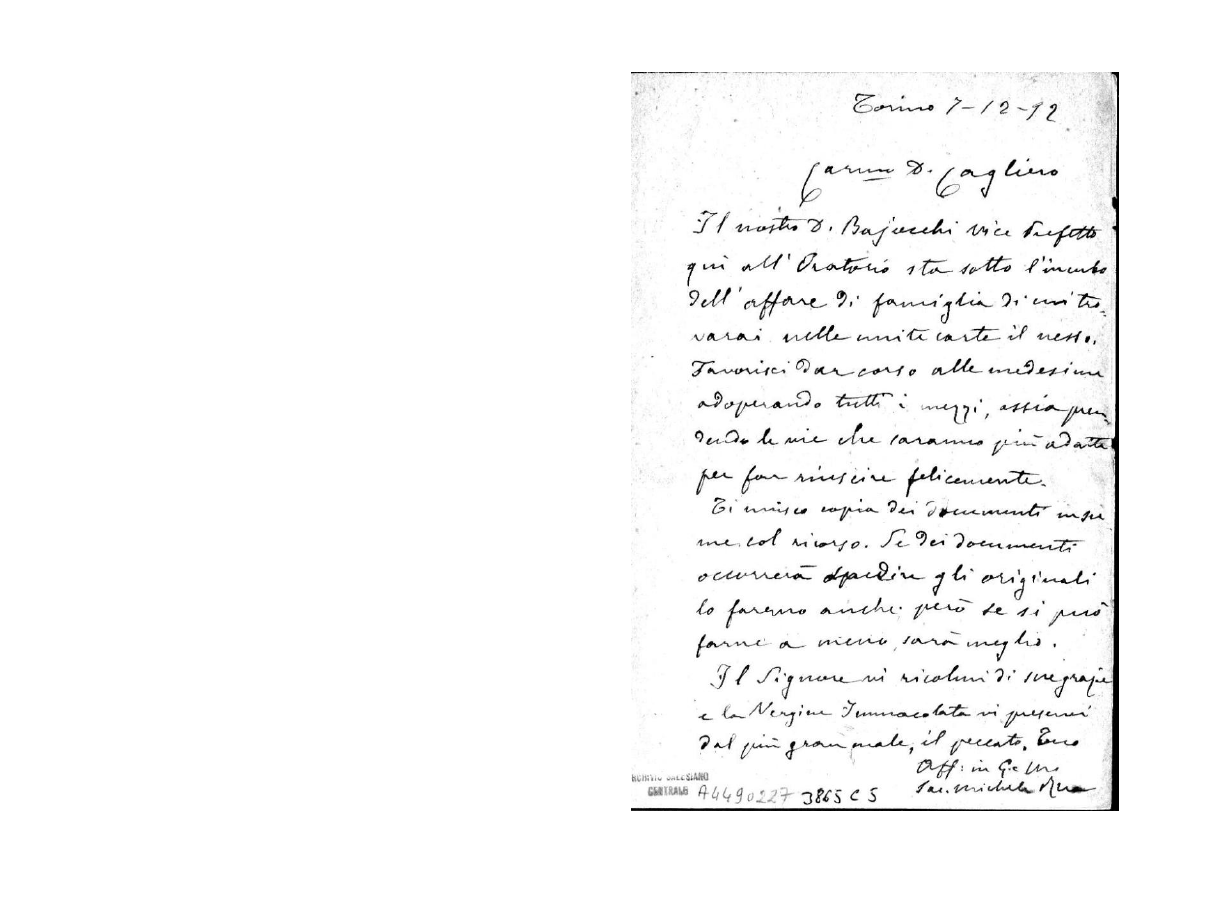 Torino 7-12-92
Carmo D. Cagliero
Il nostro D. Bajocchi vice Prefetto
qui all'Oratorio sta sotto l'incubo
dell'affare di famiglia di cui tro-
varai nelle unite carte il nesso.
Favorisci dar corso alle medesime
adoperando tutti i mezzi, ossia pren-
dendo le vie che saranno più adatte
per far riuscire felicemente.
Ti unisco copia dei documenti insie
me col ricorso. Se dei documenti
occorrerà spedire gli originali
lo faremo anche: però se si può
farne a meno, sarà meglio.
Il Signore vi ricolmi di sue grazie
e la Vergine Immacolata vi preservi
dal più gran male, il peccato. Tuo
Aff: in G. e M.
Sac. Michele Rua
ARCHIVIO SALESIANO
CENTRALE A4490227 3865 C 5